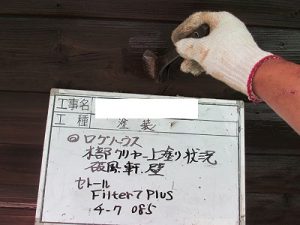 工事名
工種 塗装
◎ログハウス
木部クリヤー上塗り状況
破風.軒.壁
セトール
Filter 7 Plus
4-7 085